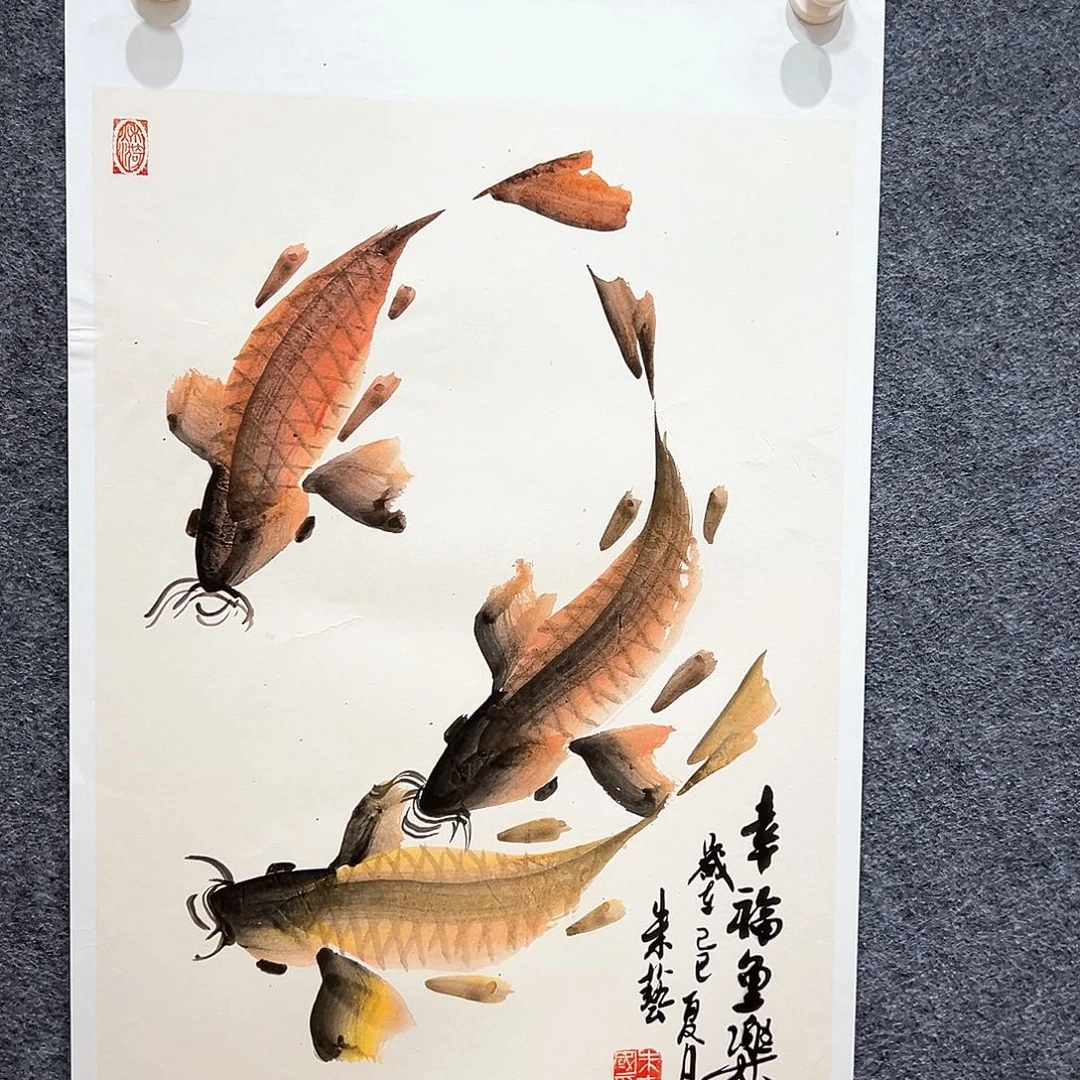 幸福鱼樂
歲在己巳夏月
朱藝